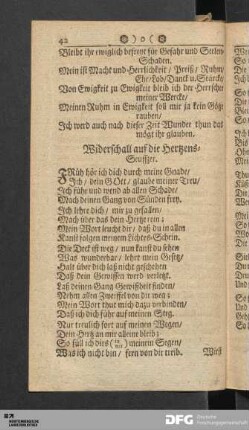 42 ❀ ) o ( ❀
Bleibt ihr ewiglich befreyt für Gefahr und Seelen-
Schaden.
Mein ist Macht und Herrlichkeit / Preiß / Ruhm /
Ehr / Lob / Danck u. Stärcke /
Von Ewigkeit zu Ewigkeit bleib ich der Herrscher
meiner Wercke /
Meinen Ruhm in Ewigkeit soll mir ja kein Götz
rauben /
Ich werd auch nach dieser Zeit Wunder thun das
mögt ihr glauben.
Widerschall auf die Hertzens-
Seufftzer.
Früh hör ich dich durch meine Gnade /
Ich / dein GOtt / glaube meiner Treu /
Ich führe und wend ab allen Schade /
Mach deinen Gang von Sünden frey.
Ich lehre dich / mir zu gefallen /
Mach über das dein Hertz rein /
Mein Wort leucht dir / daß du in allen
Kanst folgen meinem Lichtes-Schein.
Die Deck ist weg / nun kanst du sehen
Was wunderbar / lehrt mein Gesetz /
Halt über dich laß nicht geschehen
Daß dein Gewissen werd verletzt.
Laß deinen Gang Gewißheit finden /
Nehm allen Zweiffel von dir weg
Mein Wort thut mich dazu verbinden /
Daß ich dich führ auf meinen Steg.
Nur treulich fort auf meinen Wegen /
Dein Hertz an mir alleine bleib;
So soll ich dies meinem Segen /
Was ich nicht bin / fern von dir treib. Wirst
DFG
Deutsche
Forschungsgemeinschaft